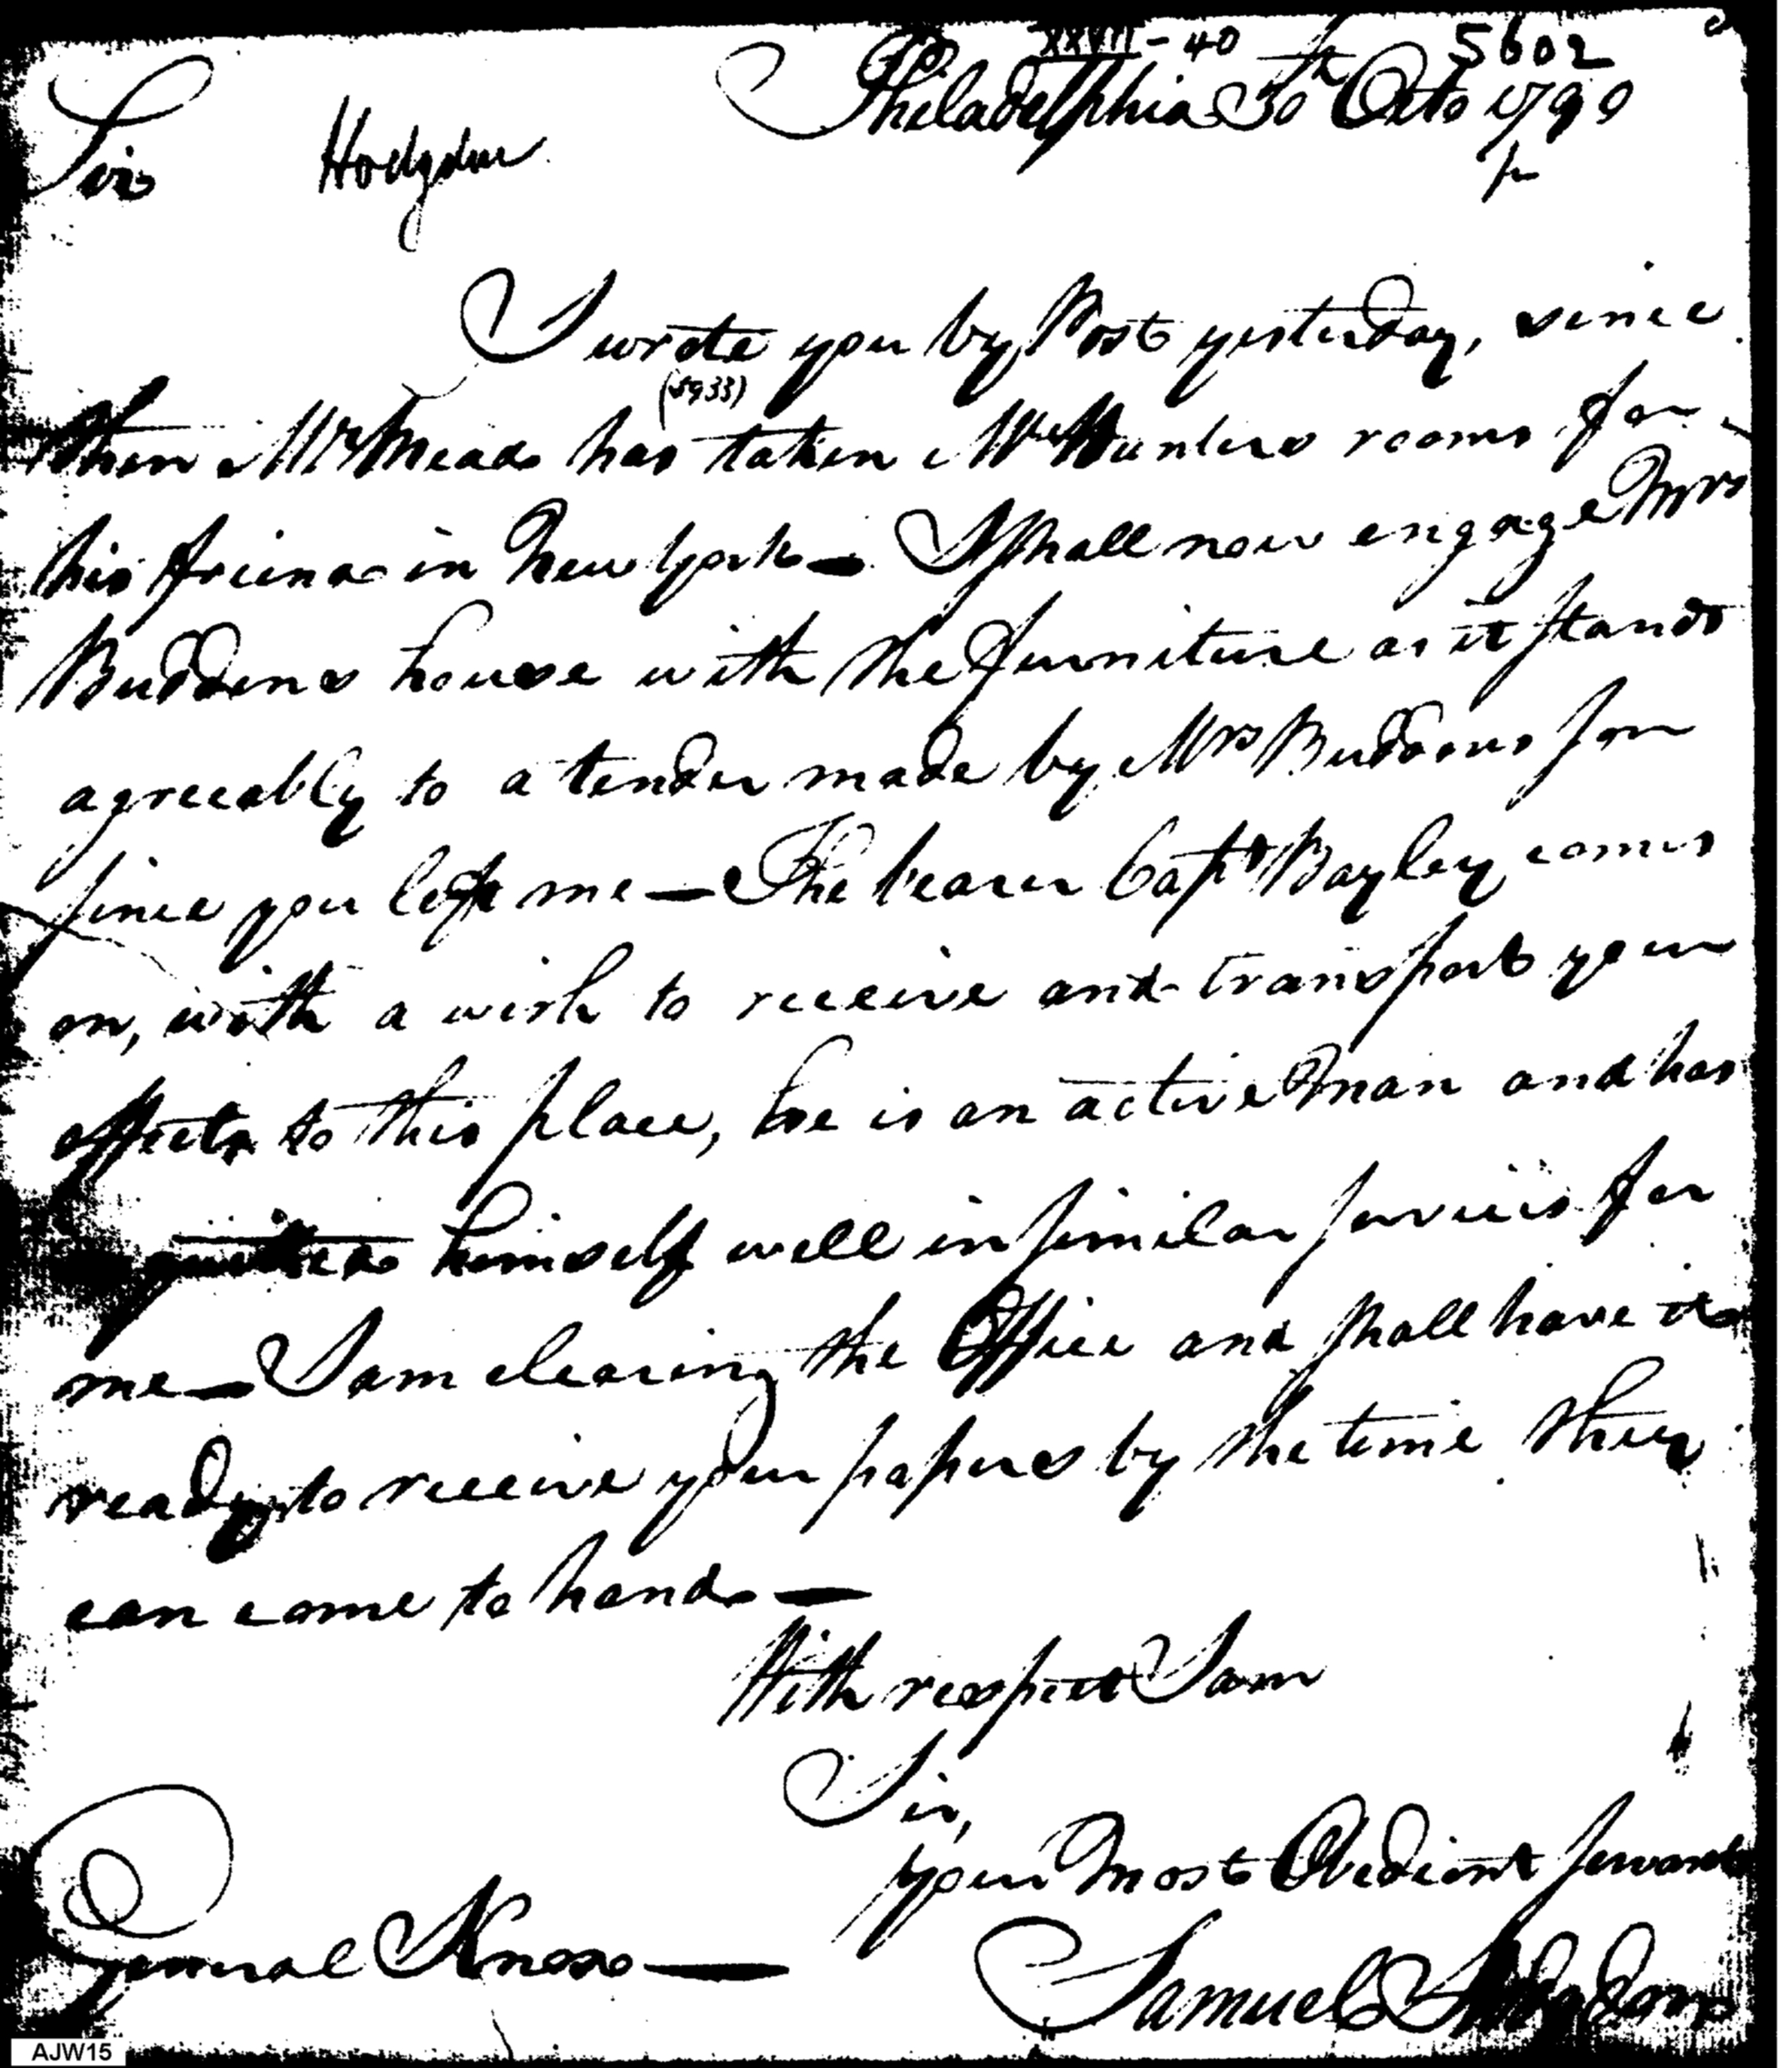 XXVII - 40 5602
Philadelphia 30th Octo 1790
Sir Hodgdon
I wrote you by Post yesterday, since
(5933)
then Mr Mead has taken Mrs Hunters rooms for
his friend in New York — I shall now engage Mrs
Buddens house with the furniture as it stands
agreeably to a tender made by Mrs Buddens for
since you left me — The bearer Capt Bayley comes
on, with a wish to receive and transport your
effects to this place, he is an active Man and has
himself well in similar services for
me — I am clearing the Office and shall have it
ready to receive your papers by the time they
can come to hand —
With respect I am
Sir,
your Most Obedient Servant
General Knox —
Samuel Hodgdon
AJW15